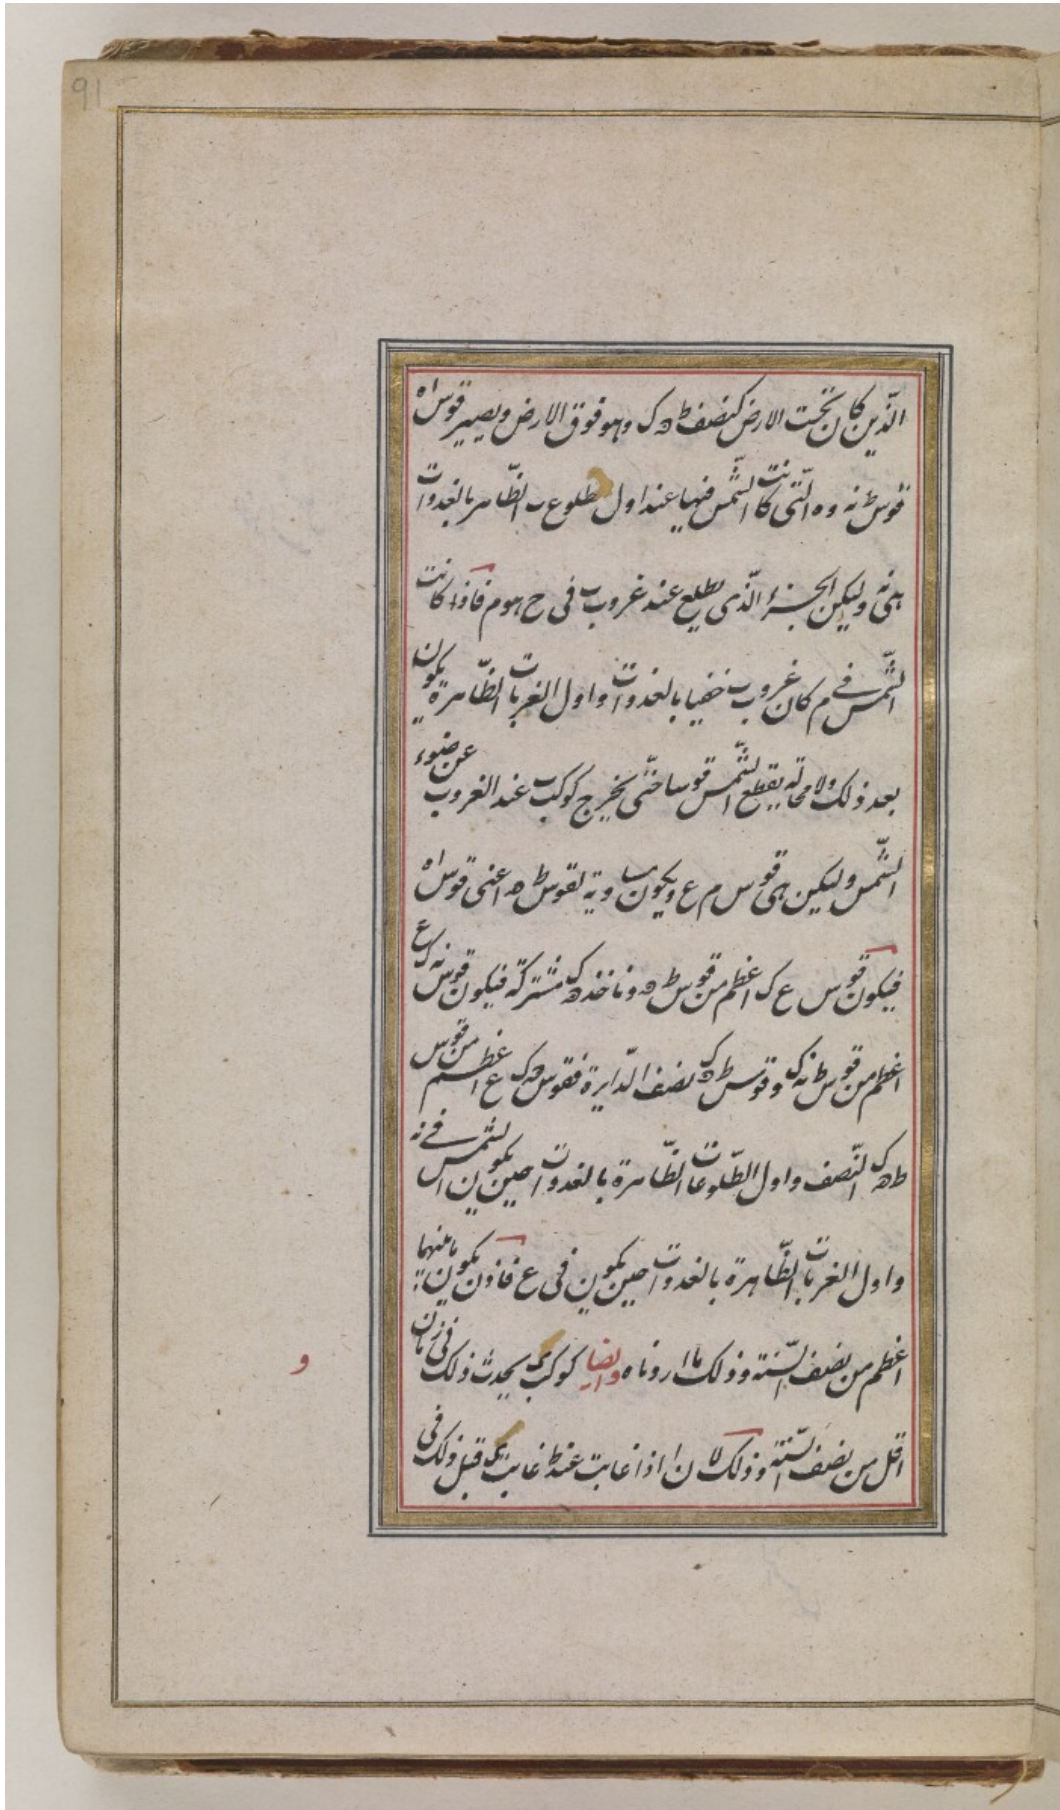 91
الذين كان تحت الارض كنصف ط ه ك وهو فوق الارض ويصير قوس اه
قوس ط نه وه الّتى كانت الشّمس فيها عند اول طلوع ب الظّاهر بالغدوات
هى نه وليكن الجزء الّذى يطلع عند غروب ب فى ح هو م فاذا كانت
الشّمس فى م كان غروب ب خفيا بالغدوات واول الغربات الظّاهرة يكون
بعد ذلك ولا محالة يقطع الشّمس قوسا حتّى يخرج كوكب ب عند الغروب عن ضوء
الشّمس وليكن هى قوس م ع ويكون مساوية لقوس ط ه اعنى قوس اه
فيكون قوس ع ك اعظم من قوس ط ه وناخذ ه ك مشتركة فيكون قوس نه ك ع
اعظم من قوس ط نه ك وقوس ط ه ك نصف الدّايرة فقوس ه ك ع اعظم من قوس
ط ه ك النّصف واول الطّلوعات الظّاهرة بالغدوات حين يكون الشمس فى نه
واول الغربات الظّاهرة بالغدوات حين يكون فى ع فاذن يكون ما بينهما
اعظم من نصف السّنة وذلك ما اردناه وايضا كوكب ى يحدث ذلك فى زمان
و
اقل من نصف السّنة وذلك لان ا اذا غابت عند ط غابت ى قبل ذلك فى